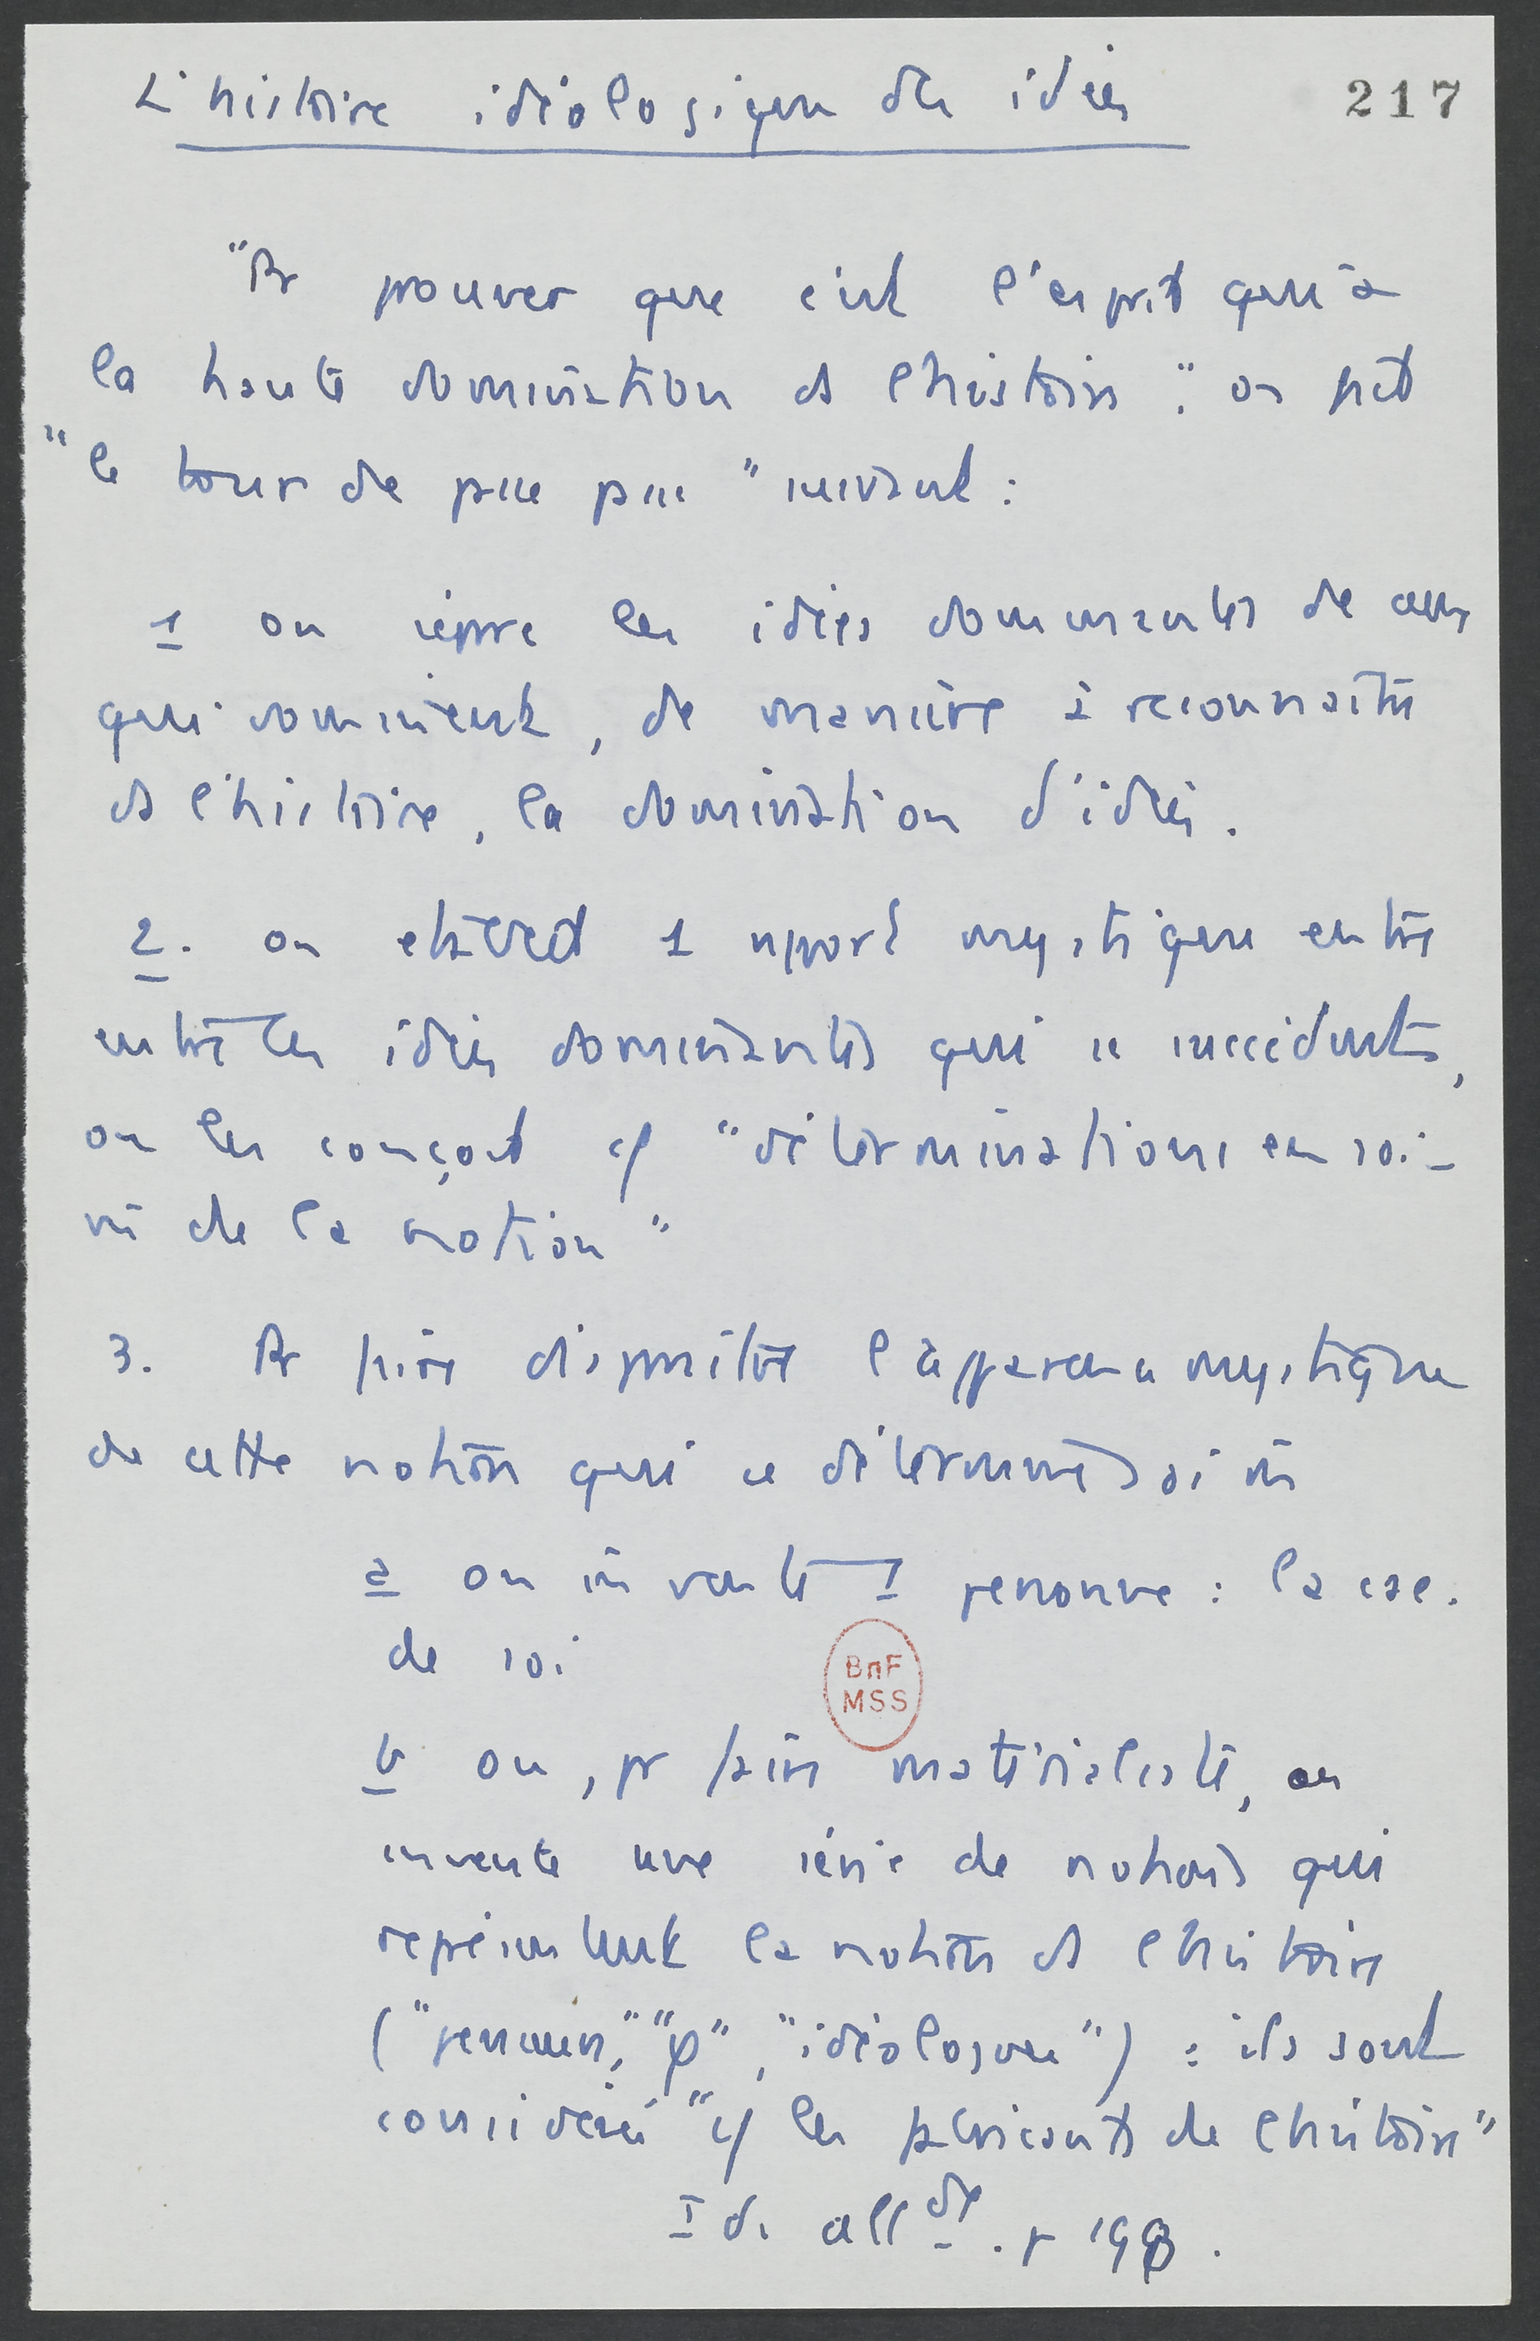 L'histoire idéologique des idées
217
"Pr prouver que c'est l'esprit qui a
la haute domination ds l'histoire", on fait
"le tour de passe passe" suivant :
1 on sépare les idées dominantes de ceux
qui dominent, de manière à reconnaître
ds l'histoire, la domination d'idées.
2. on établit 1 rapport mystique entre
entre les idées dominantes qui se succèdent,
on les conçoit cf "déterminations en soi-
m de la notion"
3. Pr faire disparaître l'apparence mystique
de cette notion qui se détermine soi m
a on invente 1 personne : la csce.
de soi
b ou, pr faire matérialiste, on
invente une série de notions qui
représentent la notion ds l'histoire
("penseurs", "φ", "idéologues") : ils sont
considérés "cf les fabricants de l'histoire"
Id. allde. p 198.
BnF
MSS